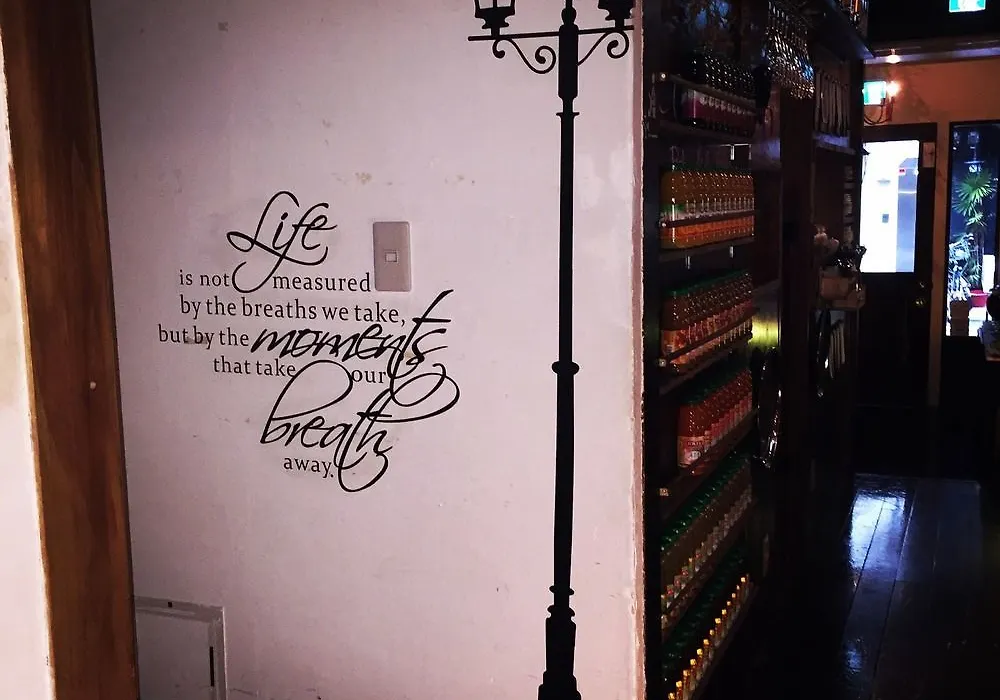 Life
is not measured
by the breaths we take,
but by the moments
that take our
breath
away.